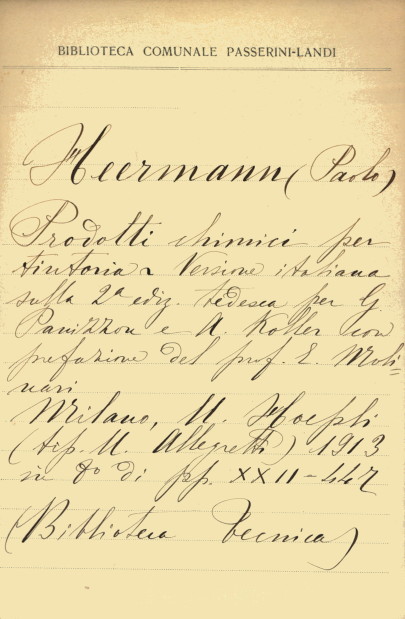 BIBLIOTECA COMUNALE PASSERINI-LANDI
Heermann (Paolo)
Prodotti chimici per
tintoria - Versione italiana
sulla 2ª ediz. tedesca per G.
Panizzon e A. Koller con
prefazione del prof. E. Moli=
nari
Milano, U. Hoepli
(tip. U. Allegretti) 1913
in 8º di pp. XXII-447
(Biblioteca Tecnica)